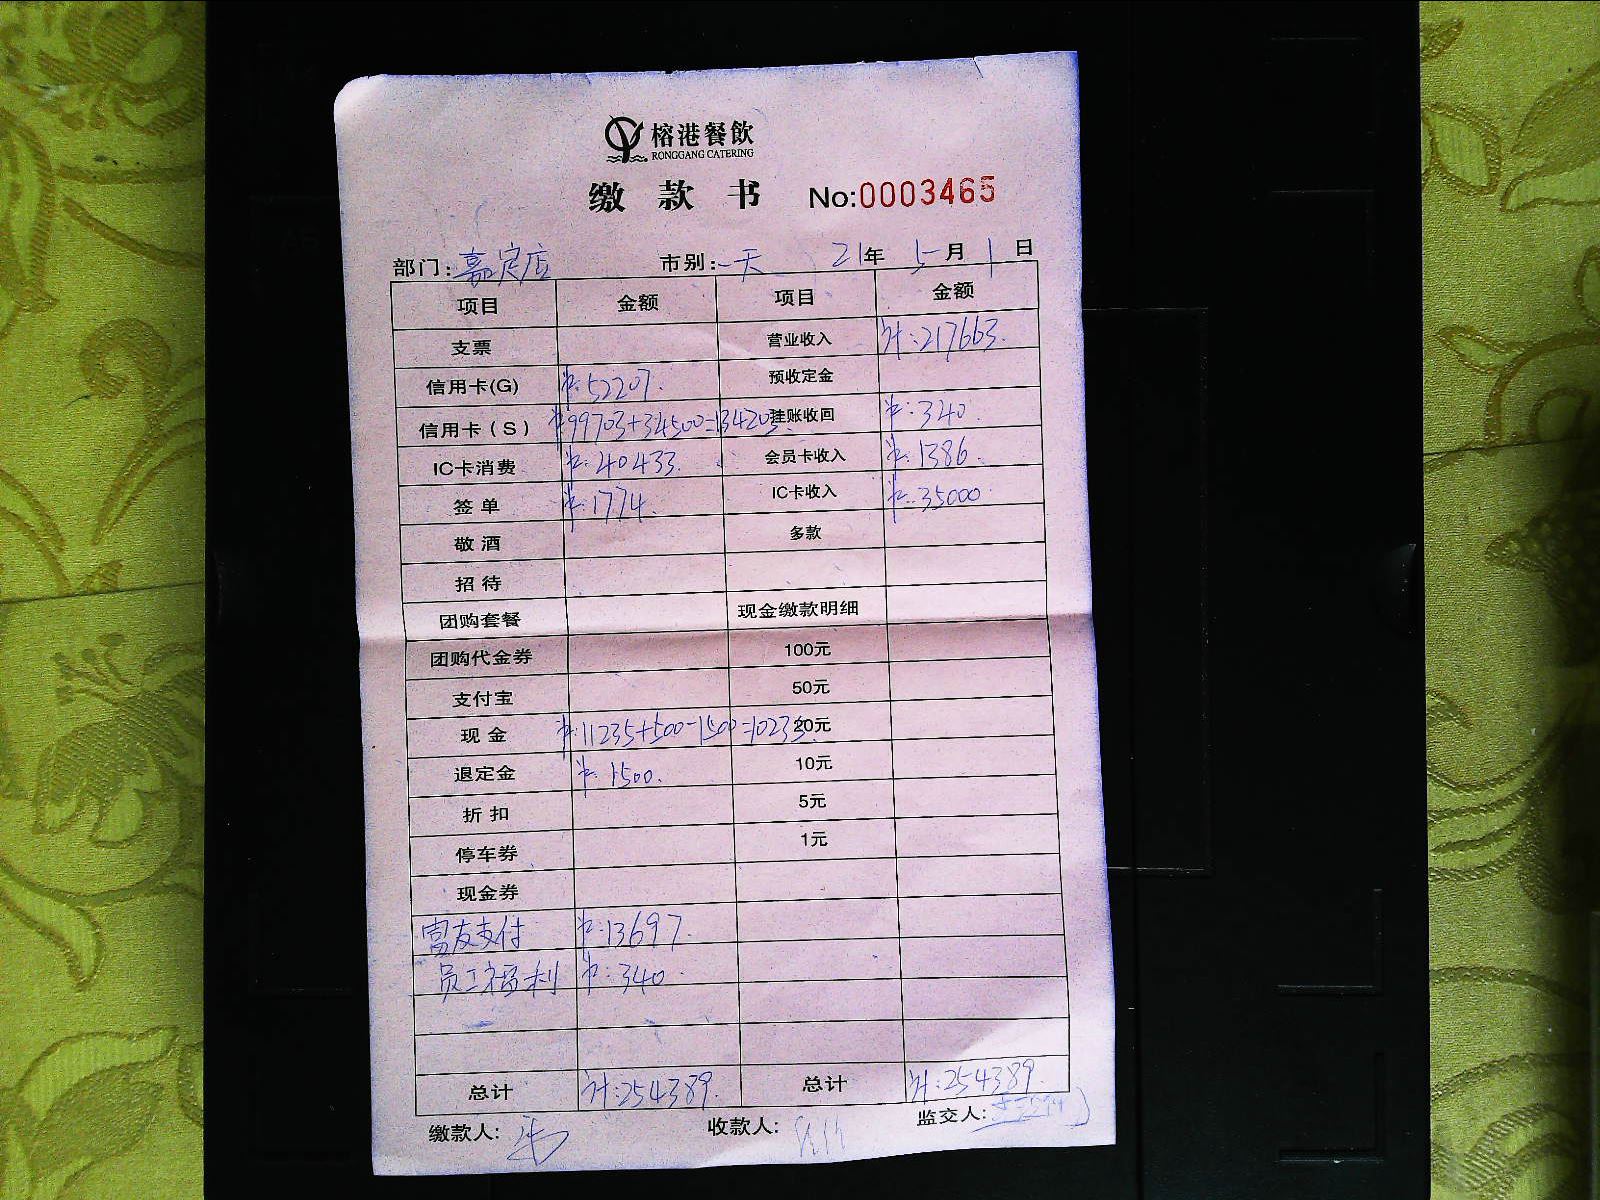 榕港餐飲
RONGGANG CATERING
缴款书 No:0003465
部门:嘉定店 市别:一天 21年 5月 1日
项目 金额 项目 金额
支票 营业收入 计:217663.
信用卡(G) 计:52207. 预收定金
信用卡(S) 计:99703+34500=134203. 挂账收回 计:340.
IC卡消费 计:40433. 会员卡收入 计:1386.
签单 计:1774. IC卡收入 计:35000.
敬酒 多款
招待
团购套餐 现金缴款明细
团购代金券 100元
支付宝 50元
现金 计:11235+500-1500=10235 20元
退定金 计:1500. 10元
折扣 5元
停车券 1元
现金券
富友支付 计:13697.
员工福利 计:340.
总计 计:254389. 总计 计:254389.
缴款人: 收款人: 监交人: